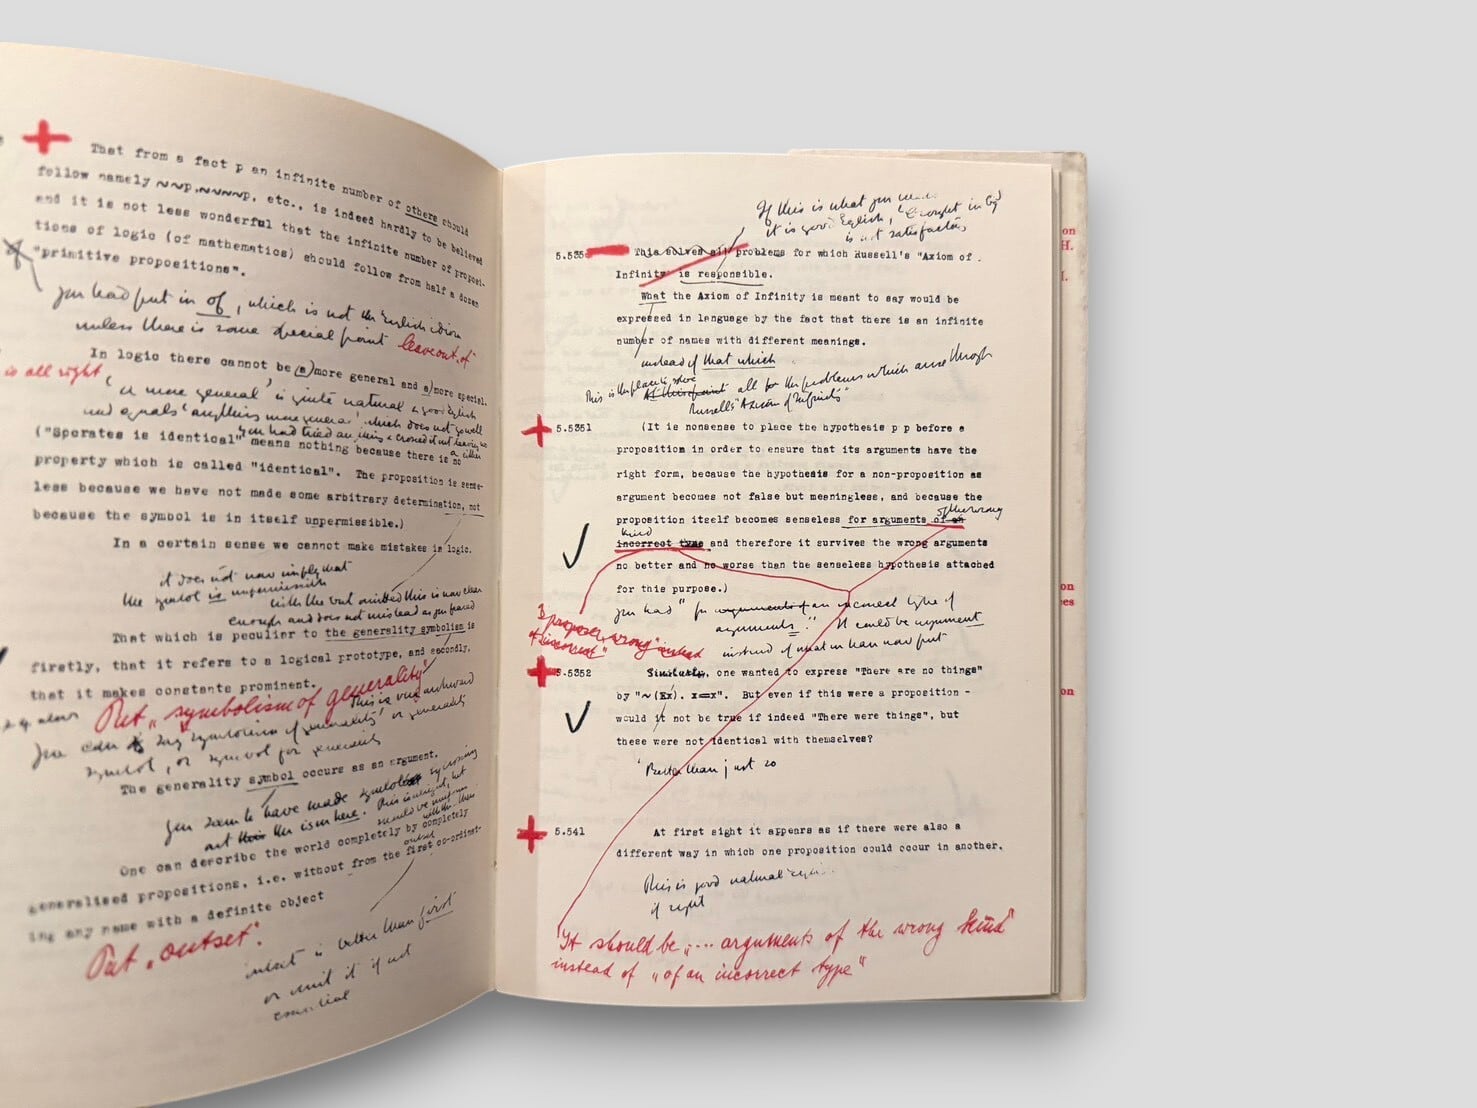 That from a fact p an infinite number of others should
follow namely ~~p,~~~~p, etc., is indeed hardly to be believed
and it is not less wonderful that the infinite number of proposi-
tions of logic (of mathematics) should follow from half a dozen
"primitive propositions".
you had put in of, which is not the English idiom
unless there is some special point leave out "of"
In logic there cannot be (a) more general and a) more special.
is all right
'a more general' is quite natural & good English
and equals 'anything more general' which does not go well
you had tried anything & crossed it out leaving
("Socrates is identical" means nothing because there is no
property which is called "identical". The proposition is sense-
less because we have not made some arbitrary determination, not
because the symbol is in itself unpermissible.)
In a certain sense we cannot make mistakes in logic.
it does not now imply that
the symbol is unpermissible
with the but omitted this is now clear
enough and does not mislead as you feared
That which is peculiar to the generality symbolism is
firstly, that it refers to a logical prototype, and secondly,
that it makes constants prominent.
Put "symbolism of generality"
This is very awkward
You can say symbolism of generality' or generality
symbol, or symbol for generality
The generality symbol occurs as an argument.
you seem to have made symbol by crossing
out the ism here. This is right, but
should be uniform
with the
One can describe the world completely by completely
generalised propositions, i.e. without from the first co-ordinat-
outset
ing any name with a definite object
Put "outset".
outset is better than first
or omit it if not
essential
If this is what you mean
it is good English, "brought in by"
is not satisfactory
5.535 This solves all problems for which Russell's "Axiom of
Infinity" is responsible.
What the Axiom of Infinity is meant to say would be
expressed in language by the fact that there is an infinite
number of names with different meanings.
instead of that which
This is the place to solve At this point all for the problems which arose through
Russell's "Axiom of Infinity"
5.5351 (It is nonsense to place the hypothesis p p before a
proposition in order to ensure that its arguments have the
right form, because the hypothesis for a non-proposition as
argument becomes not false but meaningless, and because the
proposition itself becomes senseless for arguments of an
of the wrong
kind
incorrect type and therefore it survives the wrong arguments
no better and no worse than the senseless hypothesis attached
for this purpose.)
you had "for arguments of an incorrect type of
arguments." It could be argument
instead of what you have now put
I propose "wrong" instead
of "incorrect"
5.5352 Similarly, one wanted to express "There are no things"
by "~(Ex). x=x". But even if this were a proposition -
would it not be true if indeed "There were things", but
these were not identical with themselves?
Better than just so
5.541 At first sight it appears as if there were also a
different way in which one proposition could occur in another.
This is good natural
if right
It should be "... arguments of the wrong kind"
instead of "of an incorrect type"